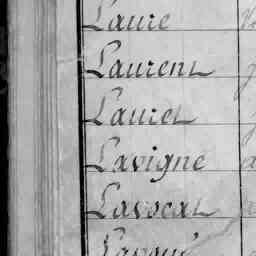 Laure
Laurent
Lauret
Lavigne
Lavocat